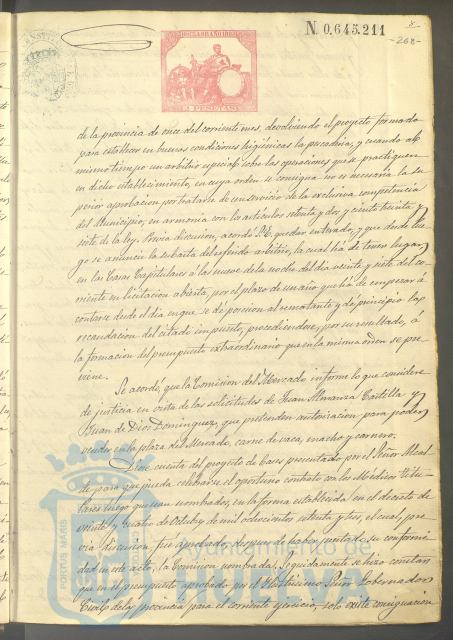 N. 0.645.211
-268-
3 PESETAS
de la provincia de once del corriente mes, devolviendo el proyecto formado
para establecer en buenas condiciones higiénicas la pescaderia, y cuando al
mismo tiempo un arbitrio especial sobre las operaciones que se practiquen
en dicho establecimiento, en cuya orden se consigna no es necesaria la su
perior aprobacion por tratarse de un servicio de la exclusiva competencia
del Municipio, en armonia con los articulos setenta y dos y ciento treinta y
siete de la ley. Previa discusion, acordó S.E. quedar enterado, y que desde lue
go se anuncie la subasta del referido arbitrio, la cual há de tener lugar
en las Casas Capitulares á las nueve de la noche del dia veinte y siete del co
rriente en licitacion abierta, por el plazo de un año que há de empezar á
contarse desde el dia en que se dé posesion al rematante y dé principio la
recaudacion del citado impuesto, procediendose, por su resultado, á
la formacion del presupuesto extraordinario que en la misma orden se pre
viene.
Se acordó, que la Comision del Mercado informe lo que considere
de justicia en vista de las solicitudes de Juan Almansa Castilla y
Juan de Dios Dominguez, que pretenden autorizacion para poder
vender en la plaza del Mercado, carne de vaca, macho y carnero.
Diose cuenta del proyecto de bases presentado por el Señor Alcal
de para que pueda celebrarse el oportuno contrato con los Médicos Titu
lares luego que sean nombrados, en la forma establecida en el decreto de
veinte y cuatro de Octubre de mil ochocientos setenta y tres, el cual, pre
via discusion, fué aprobado despues de haber prestado su conformi
dad en este acto, la Comision nombrada. Seguidamente se hizo constar
que en el presupuesto aprobado por el Ilustrisimo Señor Gobernador
Civil de la provincia para el corriente ejercicio, solo existe consignacion
PORTUS MARIS
Ayuntamiento de
HUELVA